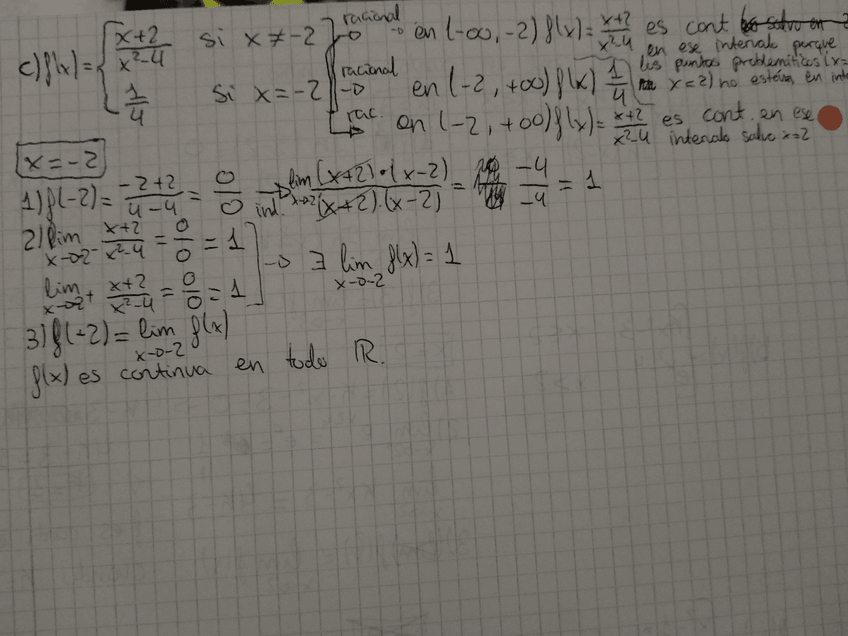 c) f(x) = { x+2/x²-4 si x ≠ -2 racional → en (-∞, -2) f(x) = x+2/x²-4 es cont
en ese intervalo porque
los puntos problemáticos (x=
x=2) no están en
1/4 si x = -2 racional → en (-2, +∞) f(x) 1/4
rac. → en (-2, +∞) f(x) = x+2/x²-4 es cont. en ese
intervalo salvo x=2
x = -2
1) f(-2) = -2+2/4-4 = 0/0 ind. → lim x→2 (x+2)·(x-2)/(x+2)·(x-2) = -4/-4 = 1
2) lim x→-2⁻ x+2/x²-4 = 0/0 = 1
lim x→-2⁺ x+2/x²-4 = 0/0 = 1
→ ∃ lim x→-2 f(x) = 1
3) f(-2) = lim x→-2 f(x)
f(x) es continua en todo ℝ.